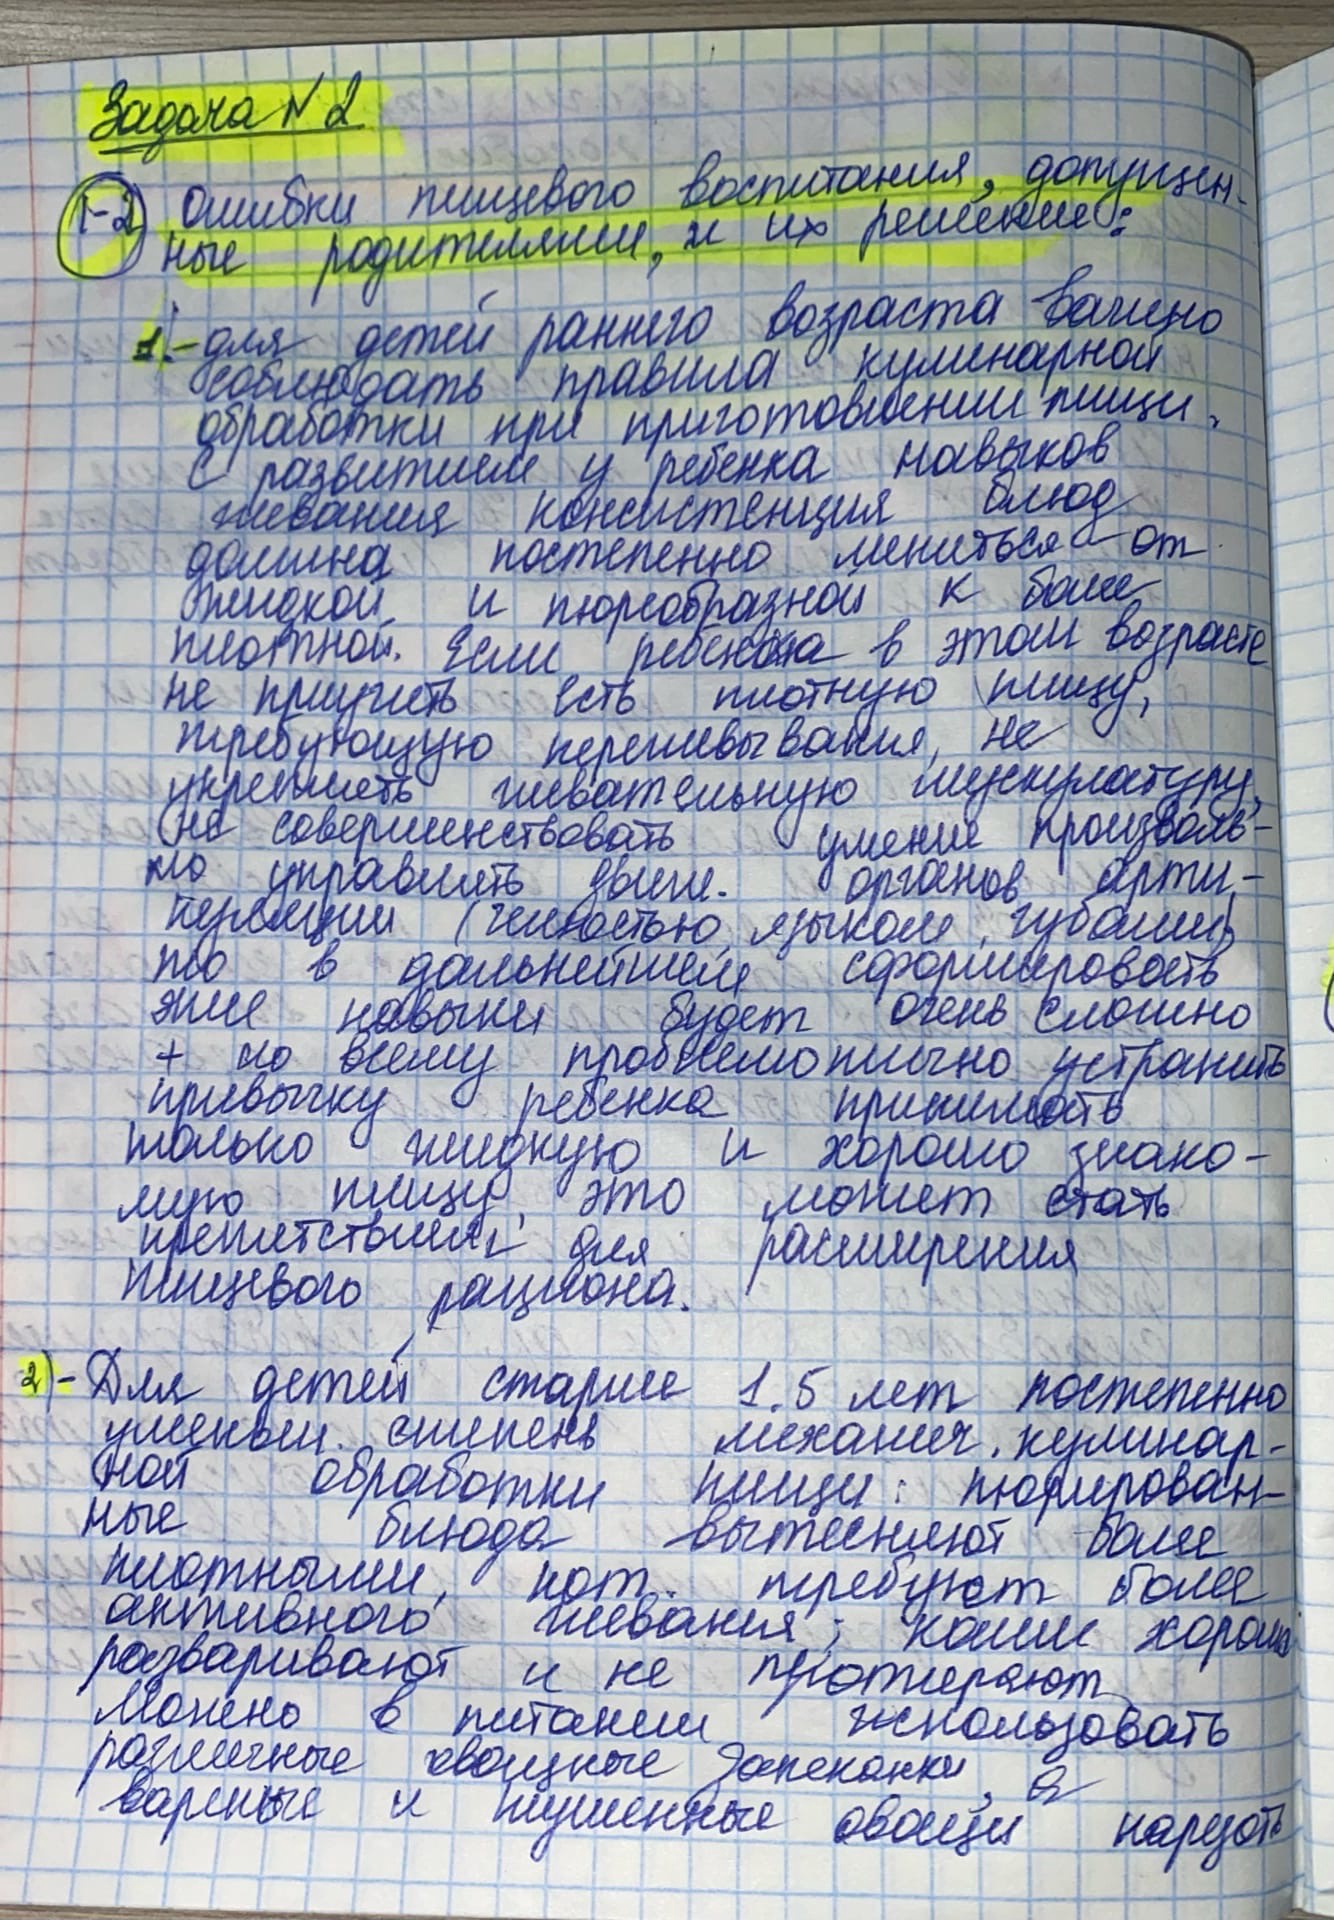 Задача №2
1-2 Ошибки пищевого воспитания, допущен-
ные родителями, и их решение:
1.- для детей раннего возраста важно
соблюдать правила кулинарной
обработки при приготовлении пищи.
С развитием у ребенка навыков
жевания консистенция блюд
должна постепенно меняться - от
жидкой и пюреобразной к более
плотной. Если ребенка в этом возрасте
не приучить есть плотную пищу,
требующую пережевывания, не
укреплять жевательную мускулатуру,
не совершенствовать умение произволь-
но управлять движ. органов арти-
куляции (челюстью, языком, губами),
то в дальнейшем сформировать
эти навыки будет очень сложно
+ ко всему проблемотично устранить
привычку ребенка принимать
только жидкую и хорошо знако-
мую пищу, это может стать
препятствием для расширения
пищевого рациона.
2)- Для детей старше 1.5 лет постепенно
уменьш. степень механич. кулинар-
ной обработки пищи: пюрирован-
ные блюда вытесняют более
плотными, кот. требуют более
активного жевания; каши хорошо
разваривают и не протирают
Можно в питании использовать
различные овощные запеканки, а
вареные и тушенные овощи нарезать